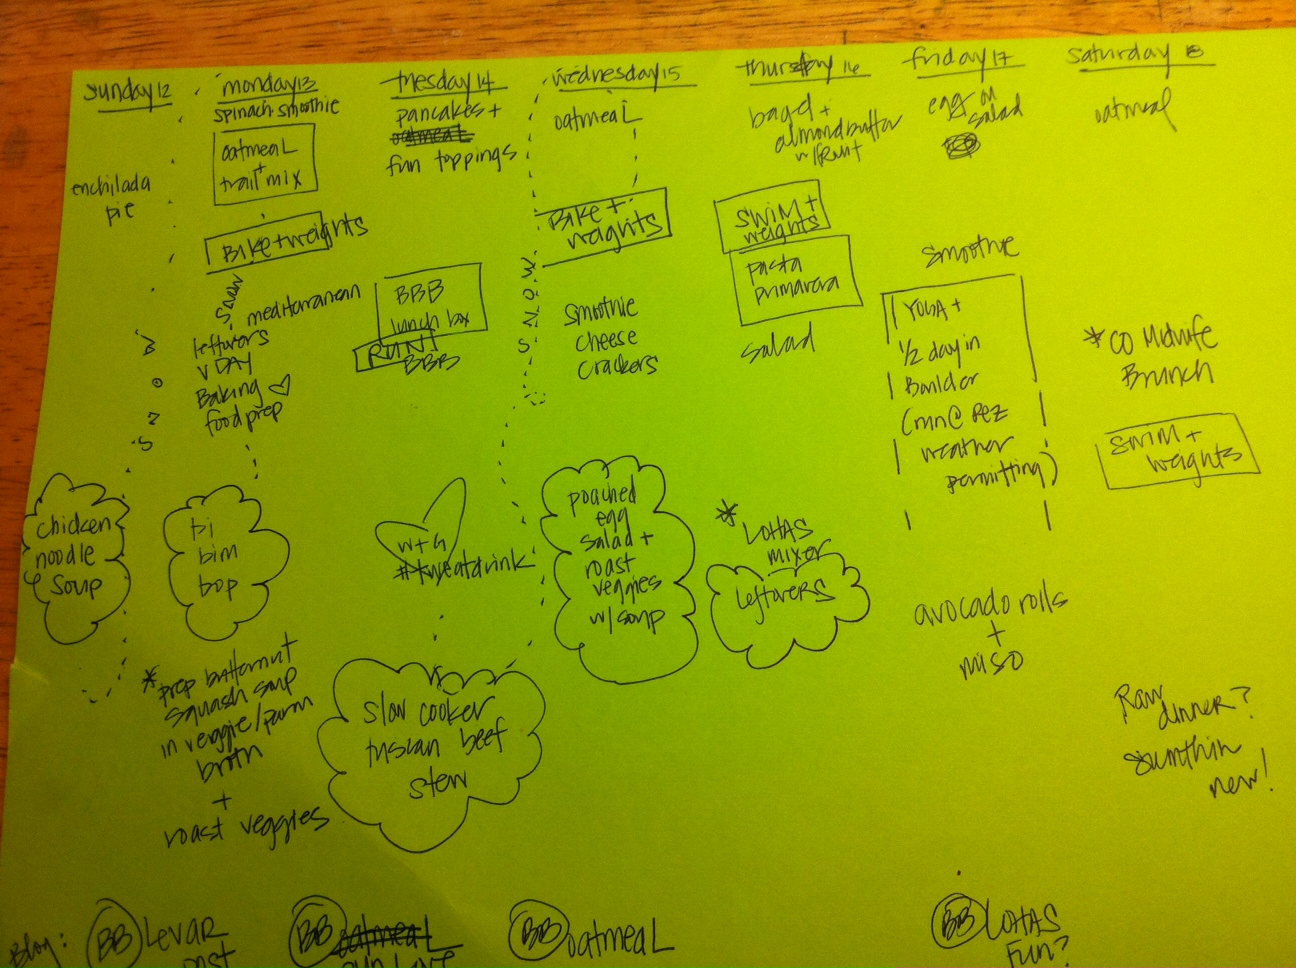 sunday 12
enchilada
pie
SNOW
chicken
noodle
soup
monday 13
spinach smoothie
oatmeal
+
trail mix
Bike + weights
snow
mediterranean
leftovers
V DAY
Baking ♡
food prep
bi
bim
bop
* prep butternut
squash soup
in veggie/parm
broth
+
roast veggies
tuesday 14
pancakes +
oatmeal
fun toppings
BBB
lunch box
RUN!
BBB
W + G
#tweatdrink
slow cooker
tuscan beef
stew
wednesday 15
oatmeal
Bike +
weights
SNOW
smoothie
cheese
crackers
poached
egg
salad +
roast
veggies
w/ soup
thursday 16
bagel +
almond butter
w/ fruit
SWIM +
weights
pasta
primavera
salad
* LOHAS
mixer
leftovers
friday 17
egg
salad
smoothie
YOGA +
1/2 day in
Boulder
(run @ Rez
weather
permitting)
avocado rolls
+
miso
saturday 8
oatmeal
* CO Midwife
Brunch
SWIM +
weights
Raw
dinner?
sumthin
new!
Blog:
BB LEVAR
BB oatmeal
BB oatmeal
BB LOHAS
FUN?